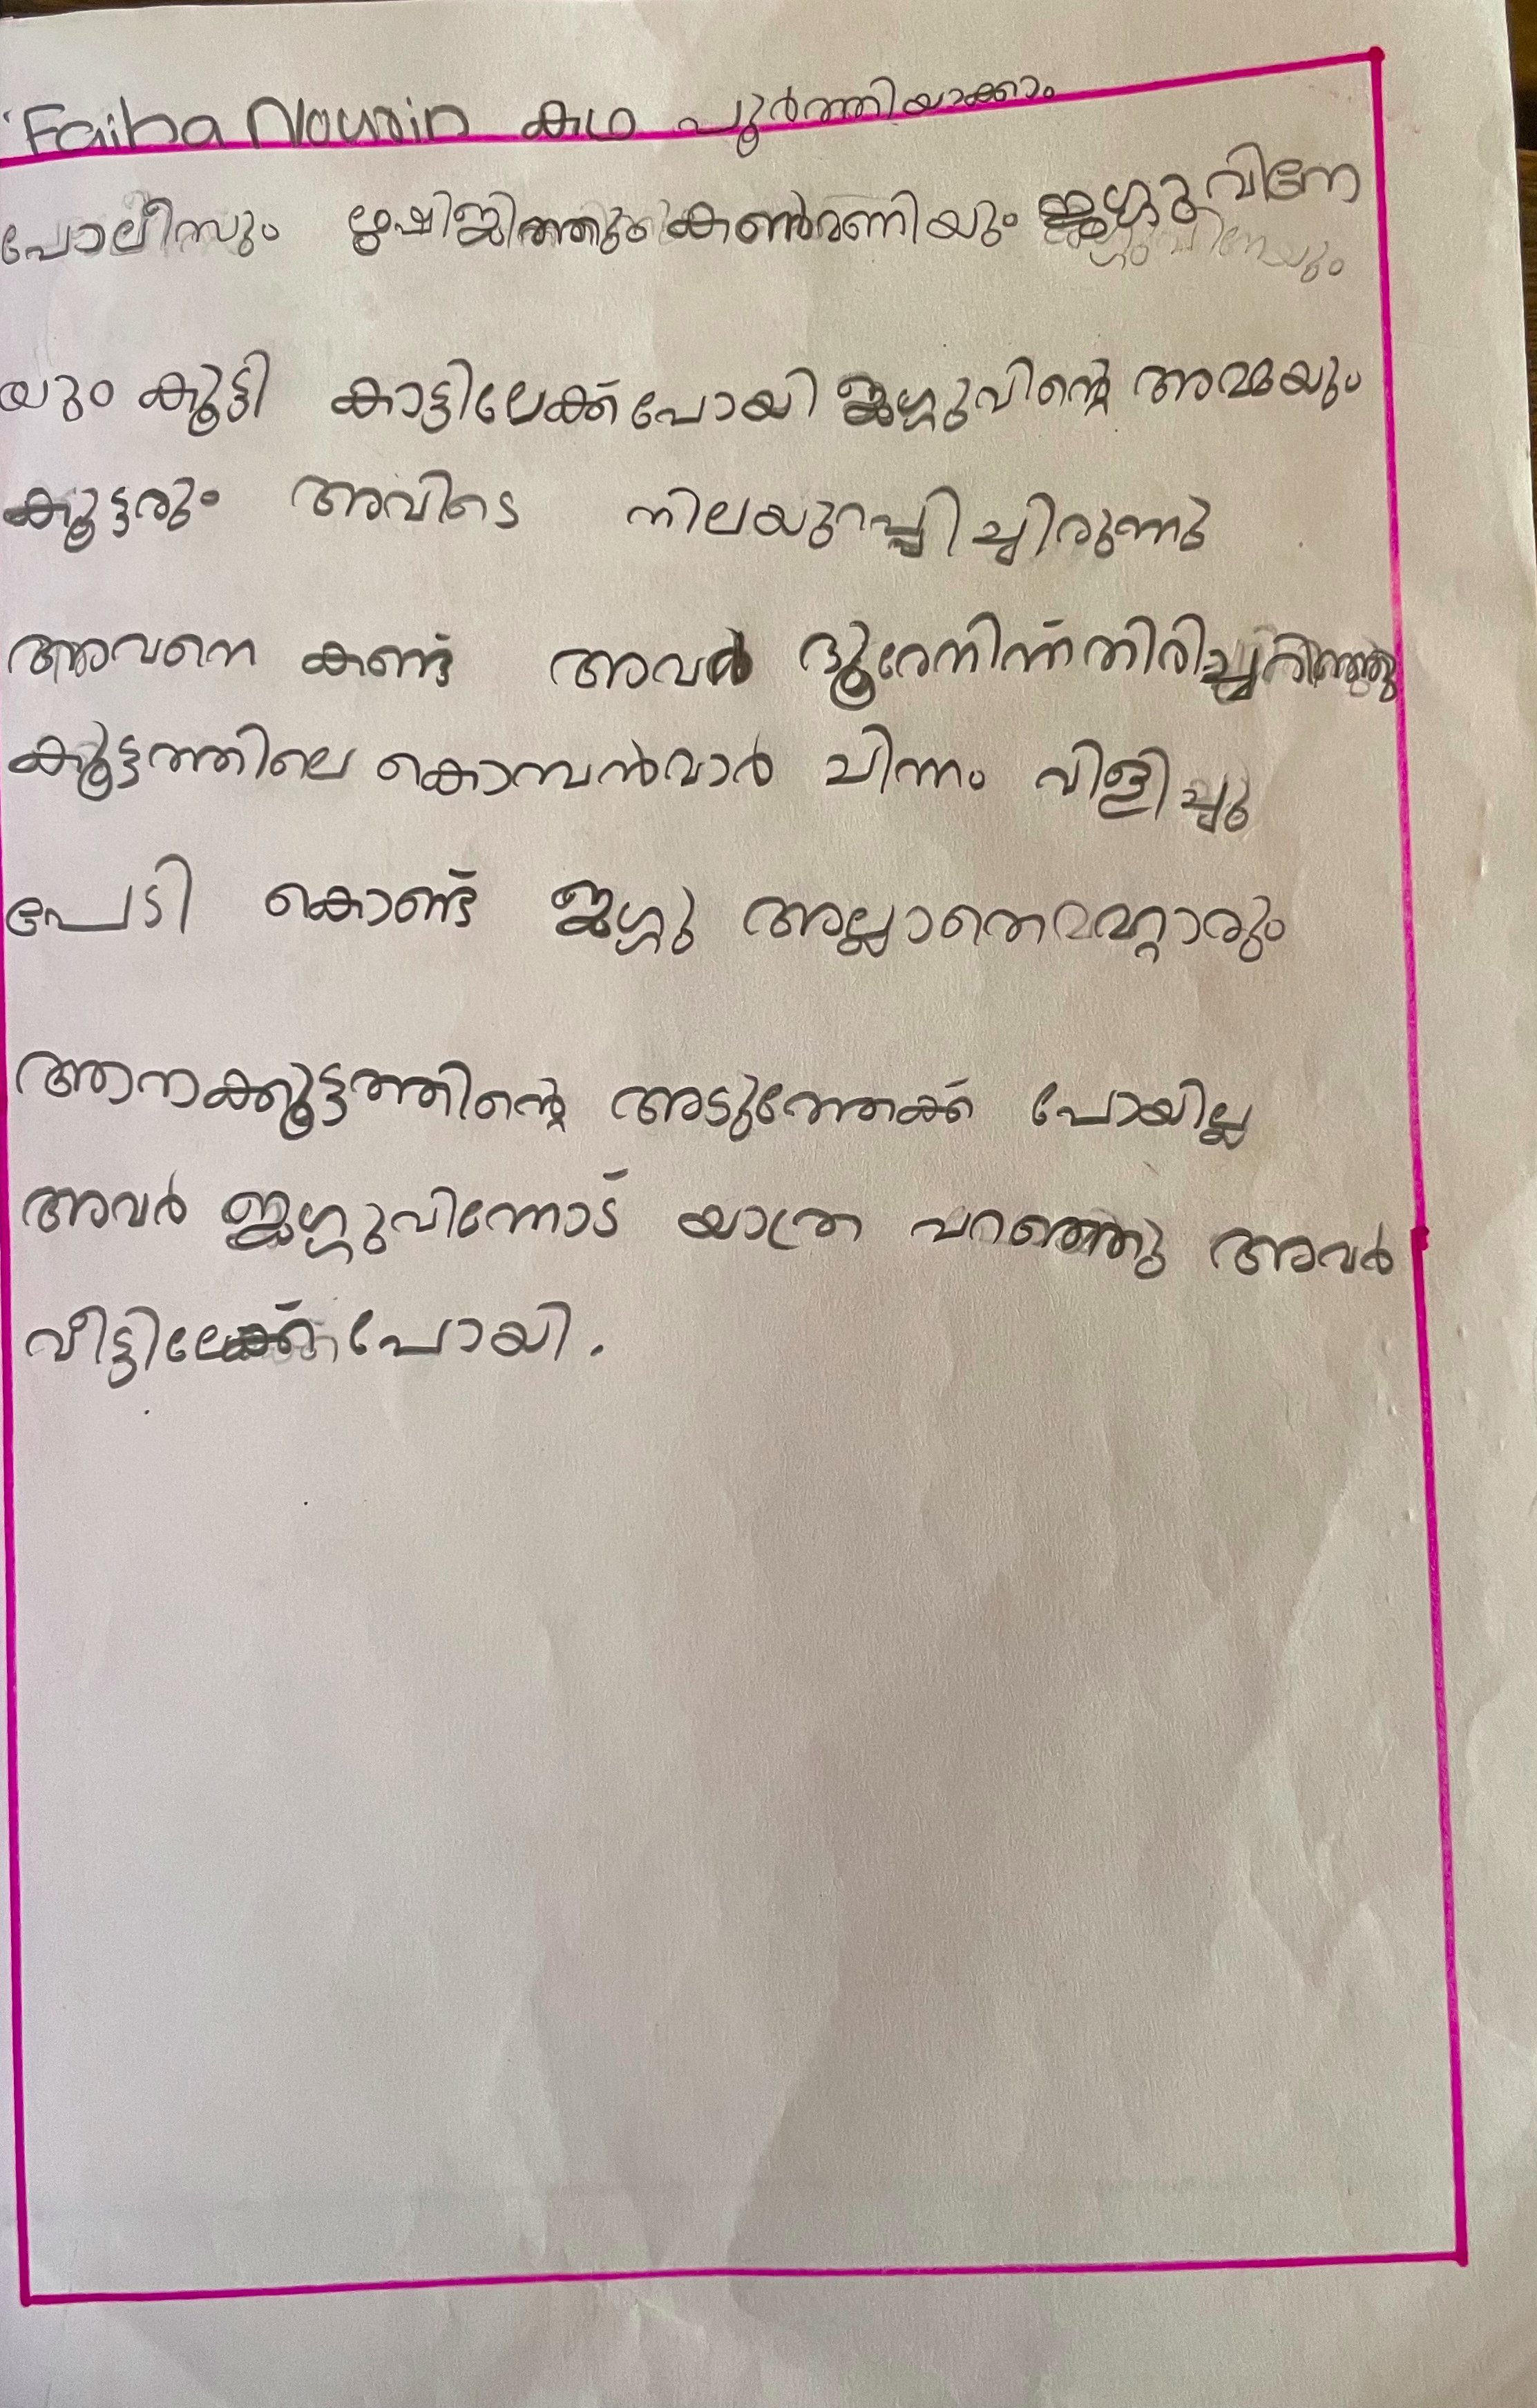 Faiha Nourin കഥ പൂർത്തിയാക്കാം
പോലീസും ഋഷിജിത്തും കൺമണിയും ജഗ്ഗുവിനേ
യും കൂട്ടി കാട്ടിലേക്ക് പോയി ജഗ്ഗുവിന്റെ അമ്മയും
കൂട്ടരും അവിടെ നിലയുറപ്പിച്ചിരുന്നു
അവനെ കണ്ട് അവർ ദൂരേനിന്ന് തിരിച്ചറിഞ്ഞു
കൂട്ടത്തിലെ കൊമ്പൻവാർ ചിന്നം വിളിച്ചു
പേടി കൊണ്ട് ജഗ്ഗു അല്ലാതെമറ്റാരും
ആനക്കൂട്ടത്തിന്റെ അടുത്തേക്ക് പോയില്ല
അവർ ജഗ്ഗുവിന്നോട് യാത്ര പറഞ്ഞു അവർ
വീട്ടിലേക്ക് പോയി.